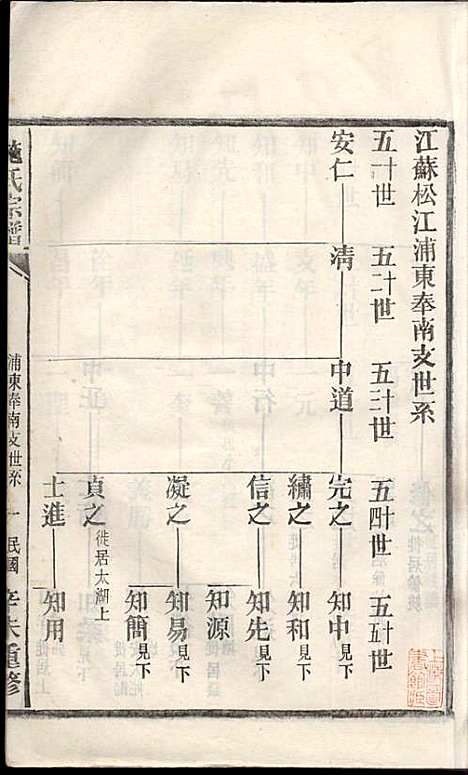 江蘇松江浦東奉南支世系
五十一世 五十二世 五十三世 五十四世 五十五世
安仁 清 中道 完之 知中見下
繡之 知和見下
信之 知先見下
知源
凝之 知易見下
知簡見下
貞之徙居太湖上
士進 知用
施氏宗譜
浦東奉南支世系 一 民國辛未重修